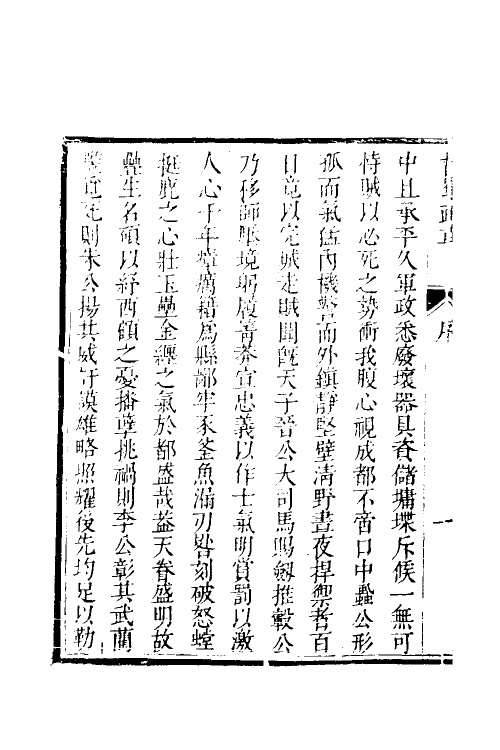 序
中且承平久軍政悉廢壞器具資儲墉堞斥候一無可
恃賊以必死之勢衝我腹心視成都不啻口中蝨公形
孤而氣佸內機警而外鎮靜堅壁清野晝夜捍禦者百
日竟以完城走賊聞旣天子晉公大司馬賜劔推轂公
乃移師壓境躬履菁莽宣忠義以作士氣明賞罰以激
人心于年瘴癘藉爲縣鄙牢豕釜魚漏刃晷刻破怒螳
挺鹿之心壯玉壘金纏之氣於都盛哉葢天眷盛明故
疊生名碩以紓西顧之憂播孽挑禍則李公彰其武藺
竟死則朱公揚其威訏謨雄略照耀後先均足以勒